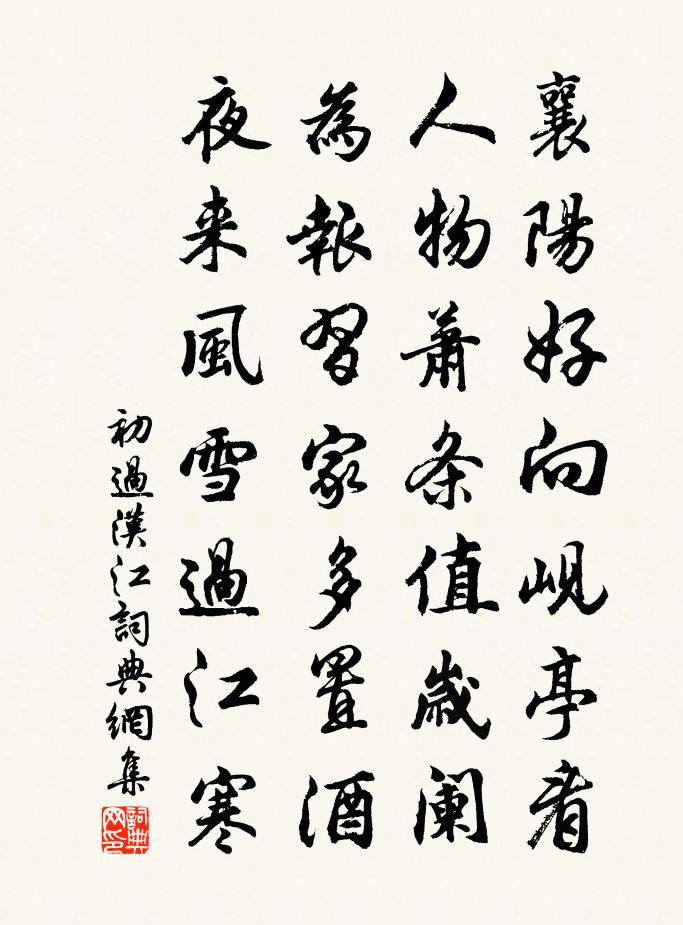 襄陽好向峴亭看
人物蕭条值歲阑
為報習家多置酒
夜来風雪過江寒
初過漢江詞典網集
詞典网印